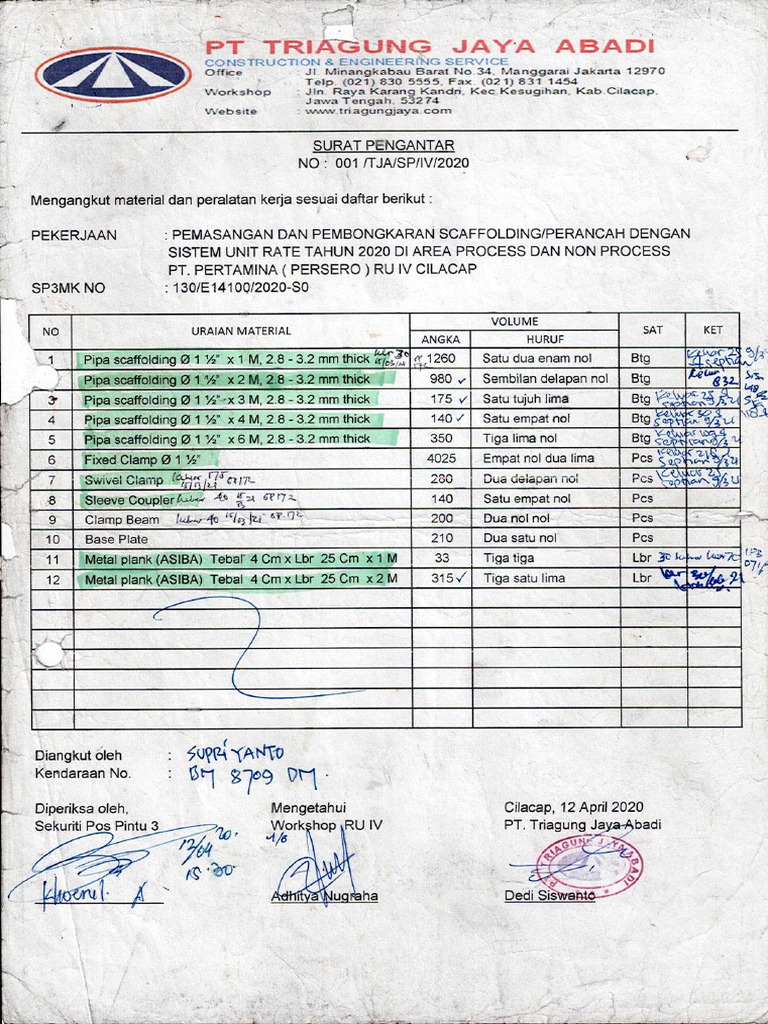 PT TRIAGUNG JAYA ABADI
CONSTRUCTION & ENGINEERING SERVICE
Office : Jl. Minangkabau Barat No.34, Manggarai Jakarta 12970
Telp. (021) 830 5555, Fax. (021) 831 1454
Workshop : Jln. Raya Karang Kandri, Kec.Kesugihan, Kab.Cilacap,
Jawa Tengah, 53274
Website : www.triagungjaya.com
SURAT PENGANTAR
NO : 001 /TJA/SP/IV/2020
Mengangkut material dan peralatan kerja sesuai daftar berikut :
PEKERJAAN : PEMASANGAN DAN PEMBONGKARAN SCAFFOLDING/PERANCAH DENGAN
SISTEM UNIT RATE TAHUN 2020 DI AREA PROCESS DAN NON PROCESS
PT. PERTAMINA ( PERSERO ) RU IV CILACAP
SP3MK NO : 130/E14100/2020-S0
NO URAIAN MATERIAL VOLUME SAT KET
ANGKA HURUF
1 Pipa scaffolding Ø 1 ½" x 1 M, 2.8 - 3.2 mm thick 1260 Satu dua enam nol Btg
2 Pipa scaffolding Ø 1 ½" x 2 M, 2.8 - 3.2 mm thick 980 ✓ Sembilan delapan nol Btg 832
3 Pipa scaffolding Ø 1 ½" x 3 M, 2.8 - 3.2 mm thick 175 ✓ Satu tujuh lima Btg
4 Pipa scaffolding Ø 1 ½" x 4 M, 2.8 - 3.2 mm thick 140 ✓ Satu empat nol Btg
5 Pipa scaffolding Ø 1 ½" x 6 M, 2.8 - 3.2 mm thick 350 Tiga lima nol Btg
6 Fixed Clamp Ø 1 ½" 4025 Empat nol dua lima Pcs
7 Swivel Clamp 280 Dua delapan nol Pcs
8 Sleeve Coupler 140 Satu empat nol Pcs
9 Clamp Beam 200 Dua nol nol Pcs
10 Base Plate 210 Dua satu nol Pcs
11 Metal plank (ASIBA) Tebal 4 Cm x Lbr 25 Cm x 1 M 33 Tiga tiga Lbr
12 Metal plank (ASIBA) Tebal 4 Cm x Lbr 25 Cm x 2 M 315 ✓ Tiga satu lima Lbr
Diangkut oleh : SUPRIYANTO
Kendaraan No. : BM 8709 DM.
Diperiksa oleh, Mengetahui Cilacap, 12 April 2020
Sekuriti Pos Pintu 3 Workshop RU IV PT. Triagung Jaya Abadi
12/04 20.
15.30
PT. TRIAGUNG JAYA ABADI
Khoerul. A. Adhitya Nugraha Dedi Siswanto